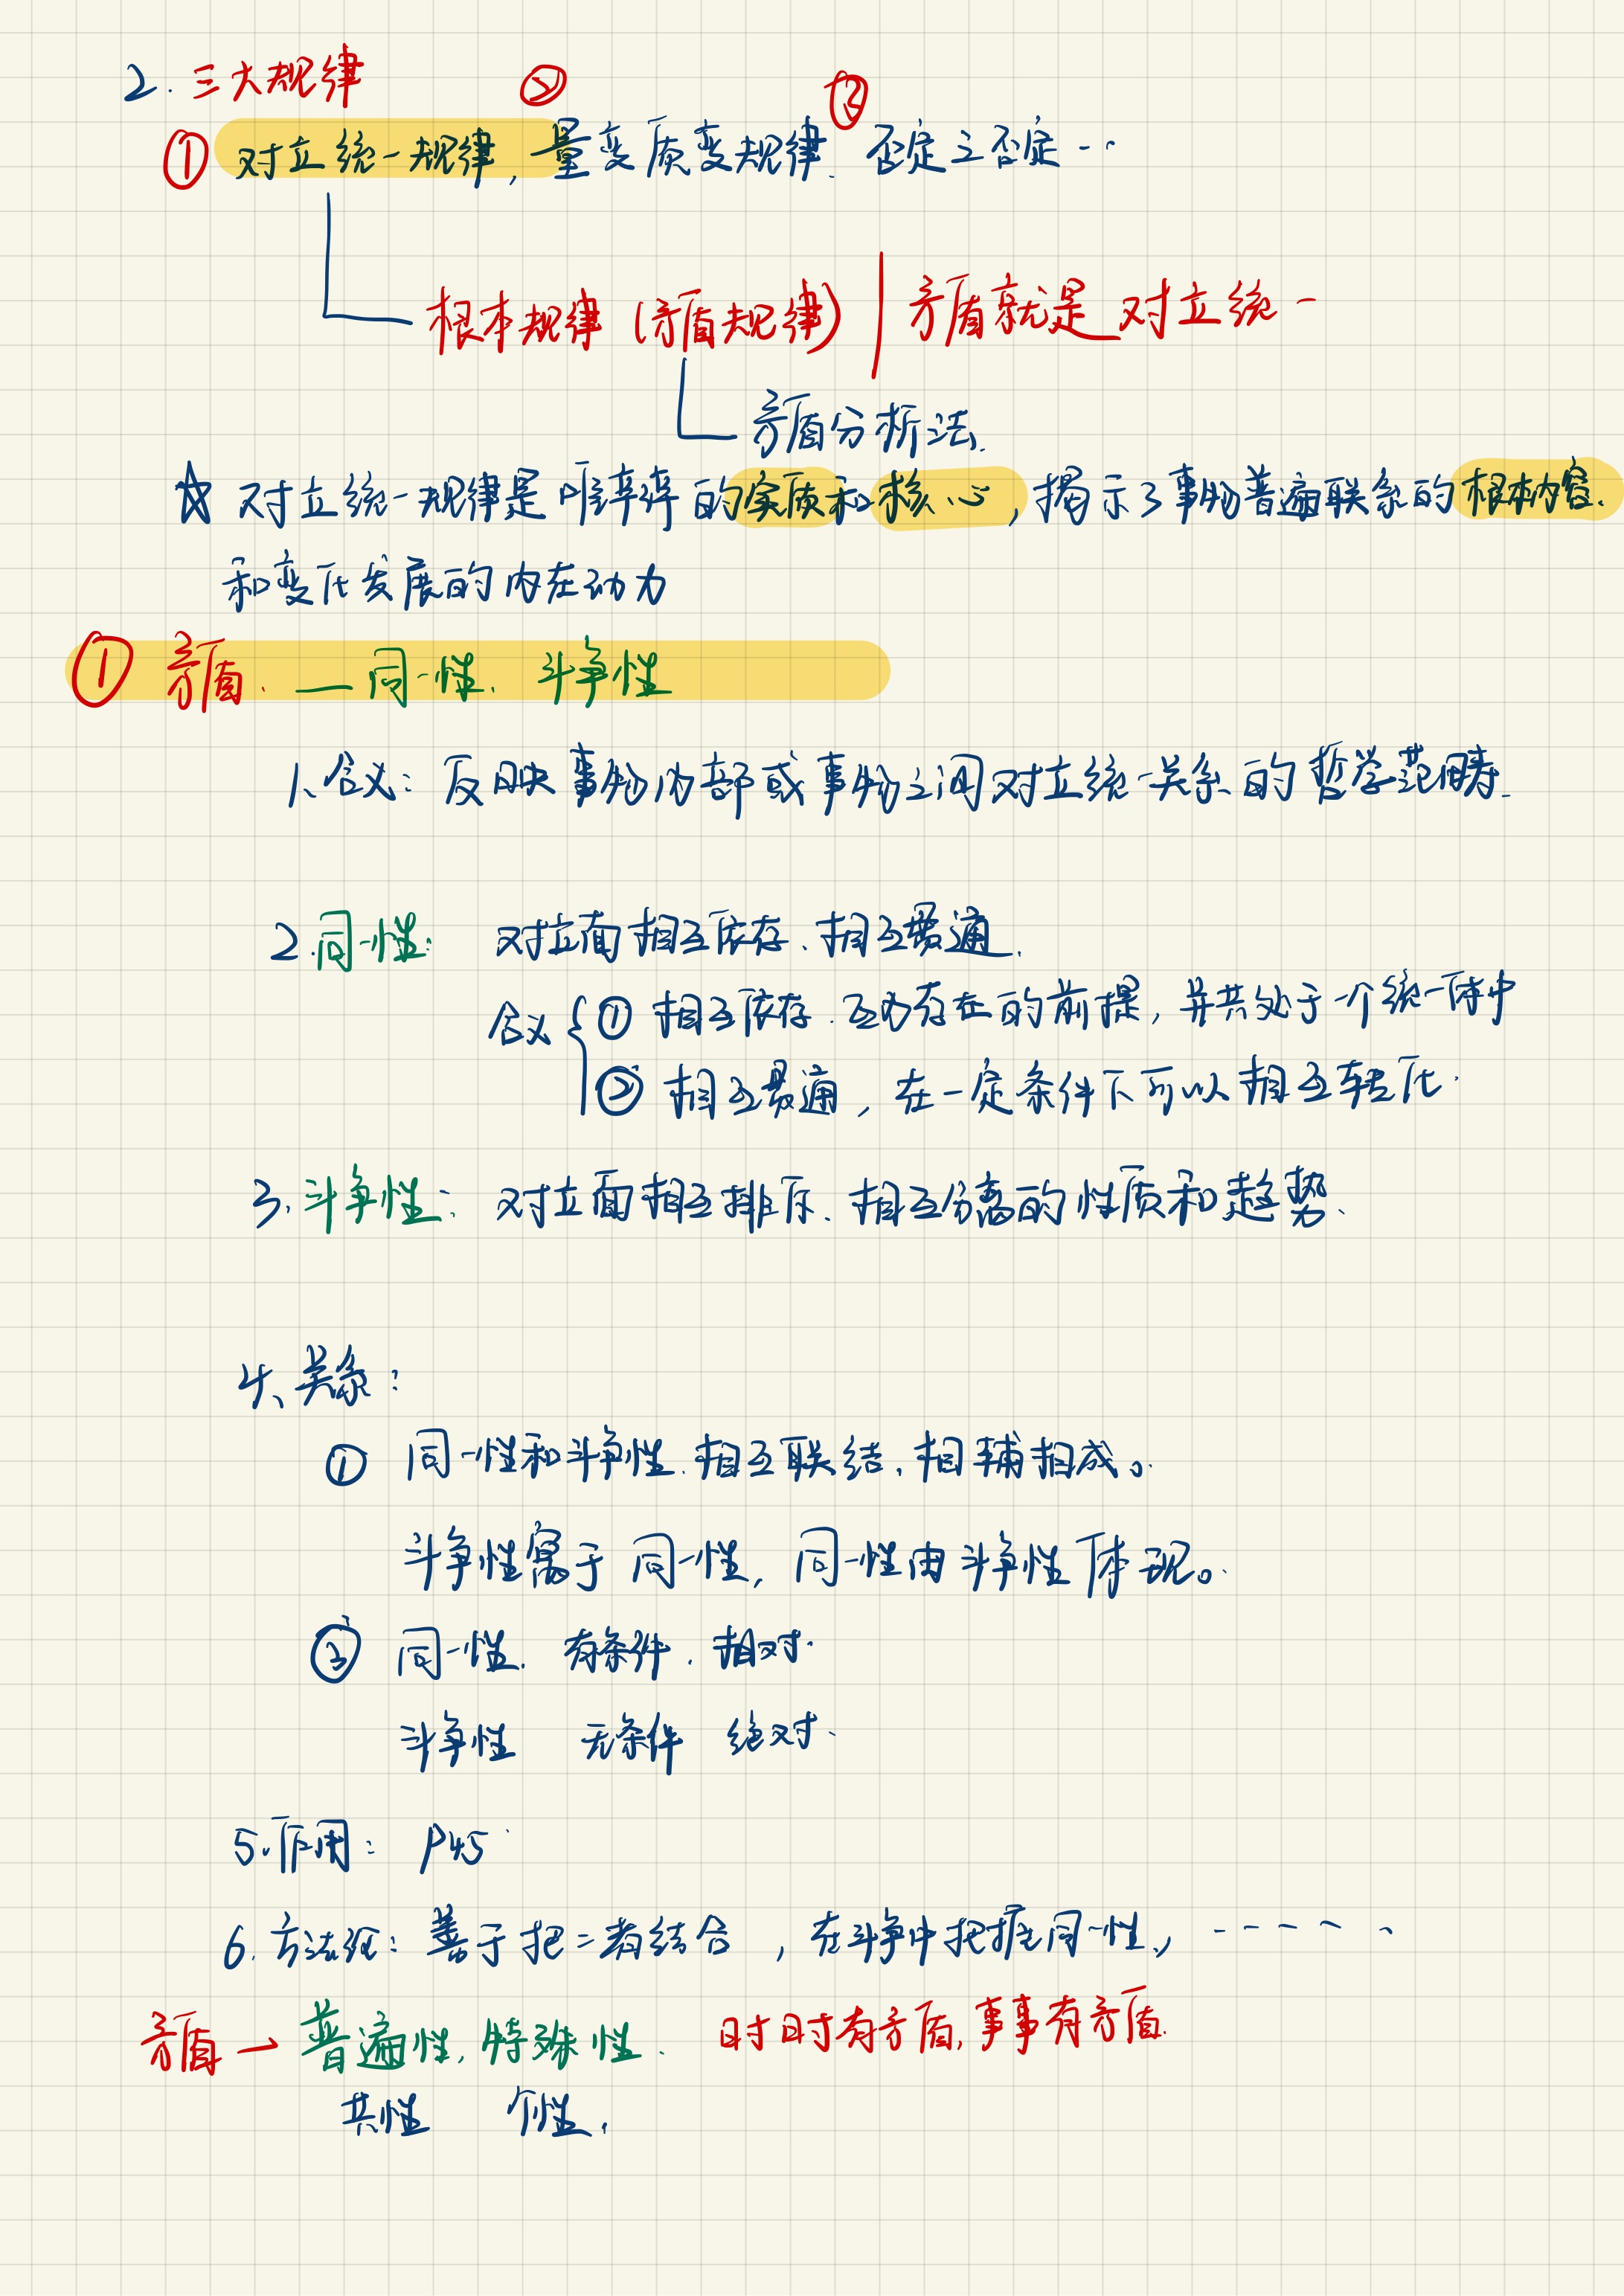 2. 三大规律 ② ③
① 对立统一规律, 量变质变规律. 否定之否定 - -
根本规律 (矛盾规律) | 矛盾就是对立统一
矛盾分析法.
☆ 对立统一规律是唯辛辛的实质和核心, 揭示了事物普遍联系的根本内容.
和变化发展的内在动力
① 矛盾. — 同一性. 斗争性
1、含义: 反映事物内部或事物之间对立统一关系的哲学范畴.
2.同一性: 对立面相互依存、相互贯通.
含义 { ① 相互依存. 互为存在的前提, 并共处于一个统一体中
② 相互贯通, 在一定条件下可以相互转化.
3. 斗争性: 对立面相互排斥. 相互分离的性质和趋势.
4、关系:
① 同一性和斗争性. 相互联结, 相辅相成。
斗争性寓于同一性, 同一性由斗争性体现。
② 同一性. 有条件. 相对.
斗争性 无条件 绝对.
5.作用: P45
6. 方法论: 善于把二者结合, 在斗争中把握同一性, - - - - -
矛盾 — 普遍性, 特殊性. 时时有矛盾, 事事有矛盾.
共性 个性.